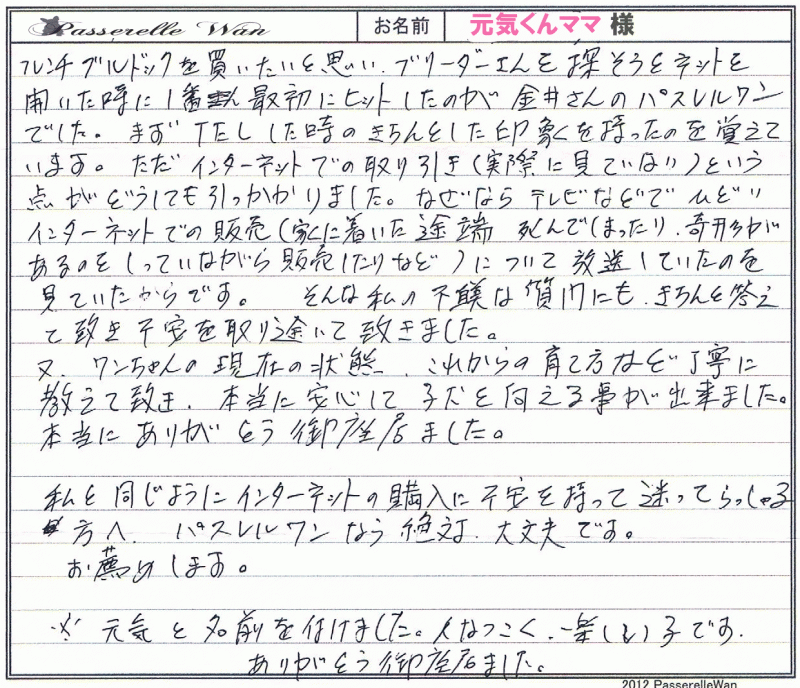 Passerelle Wan お名前 元気くんママ 様
フレンチブルドックを買いたいと思い、ブリーダーさんを探そうとネットを
開いた時に1番最初にヒットしたのが金井さんのパスレルワン
でした。まずTELした時のきちんとした印象を持ったのを覚えて
います。ただインターネットでの取り引き(実際に見ていない)という
点がどうしても引っかかりました。なぜならテレビなどでひどい
インターネットでの販売(家に着いた途端 死んでしまったり、奇形が
あるのをしっていながら販売したりなど)について放送していたのを
見ていたからです。 そんな私の不躾な質問にも、きちんと答え
て致き不安を取り途いて致きました。
又、ワンちゃんの現在の状態、これからの育て方など丁寧に
教えて致き、本当に安心して子犬を向える事が出来ました。
本当にありがとう御座居ました。
私と同じようにインターネットの購入に不安を持って迷ってらっしゃる
方へ、パスレルワンなら絶対、大丈夫です。
お薦めします。
※ 元気と名前を付けました。人なつこく、楽しい子です。
ありがとう御座居ました。
2012 PasserelleWan